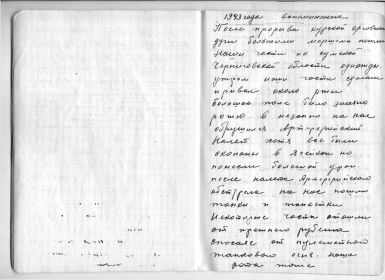 1943 года воспоминание
После прорыва курской орловской
дуги большими маршами пошли
наши части по сумской
Черниговской области однажды
утром наши части сделали
привал около ржи
большое поле было засеяно
рожю и незапно на нас
обрушился Артелерийский
налет хотя все были
окопаны в ячейки но
понесли большой урон
после налета Артелерийского
обстрела на нас пошли
танки и танкетки
Некоторые части отошли
от прежнего рубежа
спасаясь от пулеметного
танкового огня. наша
рота тоже